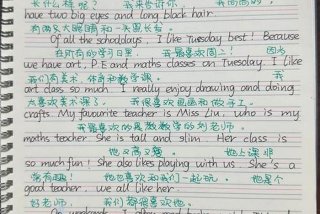 长什么样呢？ 我来告诉你
have two big eyes and long black hair.
有两只大眼睛和一头黑长
Of all the schooldays, I like Tuesday best! Because
在所有的学习日里， 我最喜欢周二！ 因为
we have art, P.E and maths classes on Tuesday. I like
我们有美术、体育和数学课。 我
art class so much. I really enjoy drawing and doing
喜欢美术课了。 我很喜欢画画和做手工。
crafts. My favourite teacher is Miss Liu, who is my
我最喜欢的是教数学的刘老师。
maths teacher. She is tall and slim. Her class is
她又高又瘦。 她上课非
so much fun! She also likes playing with us. She's a
常有趣！ 她也喜欢和我们一起玩。 她是个
good teacher, we all like her.
好老师， 我们都很喜欢她。